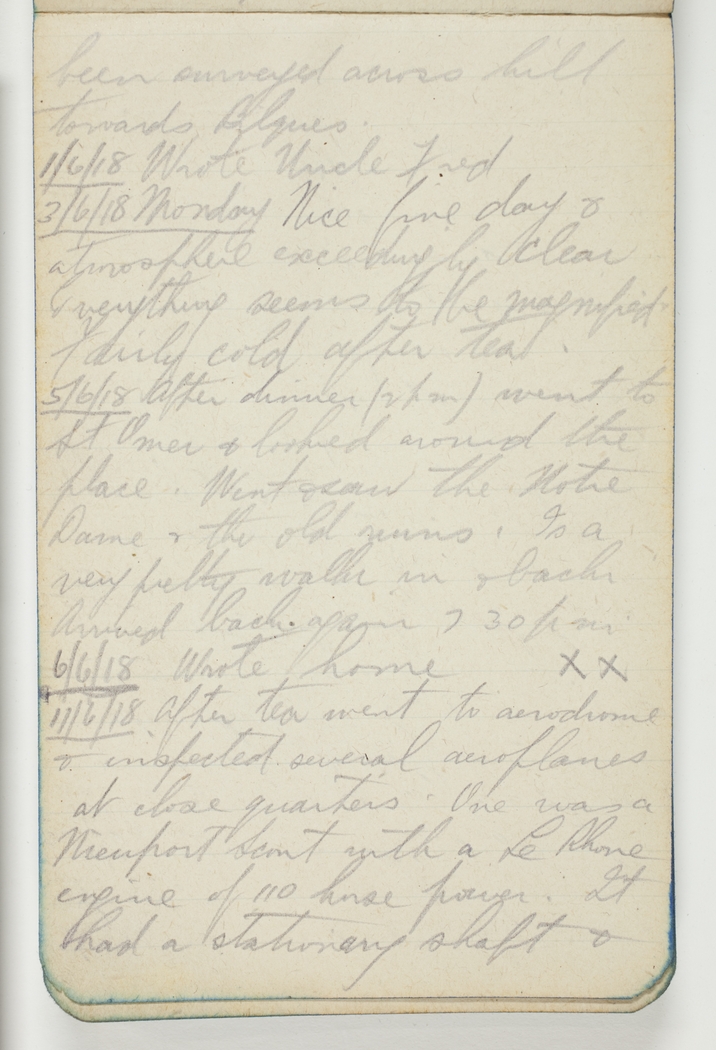 been surveyed across hill
towards Bilques.
1/6/18 Wrote Uncle Fred
3/6/18 Monday Nice fine day &
atmosphere exceedingly clear
Everything seems to be magnified
Fairly cold after tea.
5/6/18 After dinner (2 pm) went to
St Omer & looked around the
place. Went & saw the Notre
Dame & the old ruins. Is a
very pretty walk in & back
Arrived back again 7 30 pm
6/6/18 Wrote home XX
11/6/18 After tea went to aerodrome
& inspected several aeroplanes
at close quarters. One was a
Nieuport Scout with a Le Rhone
engine of 110 horse power. It
had a stationary shaft &